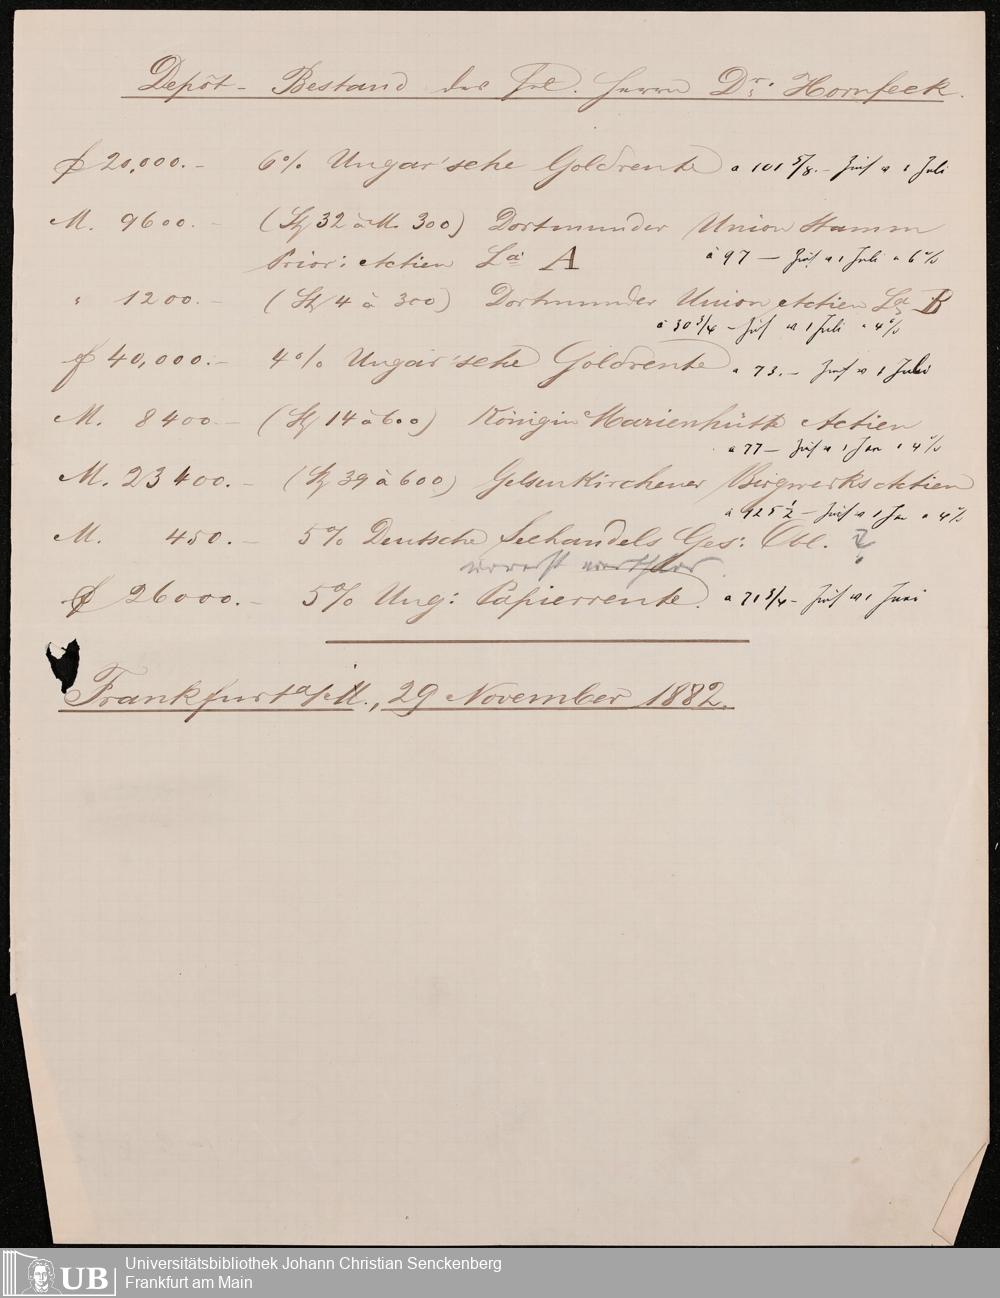 Depôt - Bestand des Frl. Herrn Dr. Hornfeck.
f 20,000.- 6% Ungar'sche Goldrente a 101 5/8.- Zins v 1 Juli
M. 9600.- (Stg 32 à M. 300) Dortmunder Union Stamm
Prior: Actien La A à 97 — Zins v 1 Juli a 6%
" 1200.- (Stg 4 à 300) Dortmunder Union Actien La B
a 30 3/4 - Zins v 1 Juli a 4%
f 40,000.- 4% Ungar'sche Goldrente a 73.- Zins v 1 Juli
M. 8400.- (Stg 14 à 600) Königin Marienhütte Actien
a 77 — Zins v 1 Jan a 4%
M. 23400.- (Stg 39 à 600) Gelsenkirchener Bergwerks Actien
a 125 1/2 - Zins v 1 Jan a 4%
M. 450.- 5% Deutsche Seehandels Ges: Obl. ?
f 26000.- 5% Ung: Papierrente. a 71 3/4 - Zins v 1 Juni
Frankfurt a/M., 29 November 1882.
UB
Universitätsbibliothek Johann Christian Senckenberg
Frankfurt am Main